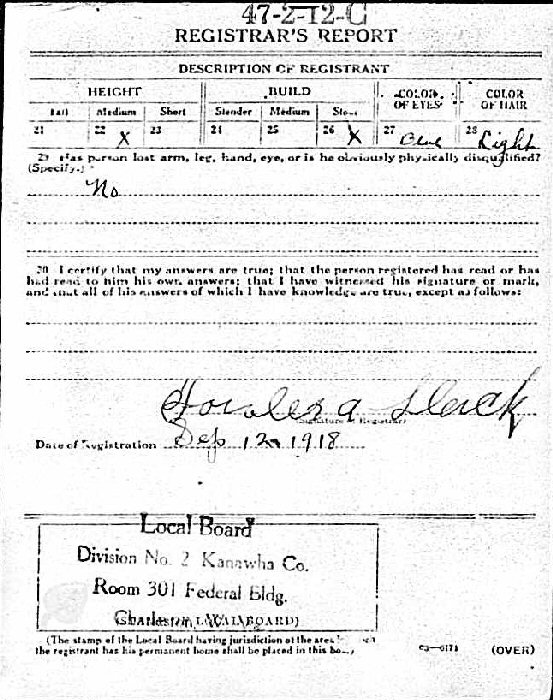 47-2-12-C
REGISTRAR'S REPORT
DESCRIPTION OF REGISTRANT
HEIGHT BUILD COLOR OF EYES COLOR OF HAIR
Tall Medium Short Slender Medium Stout
21 22 X 23 24 25 26 X 27 28 Light
29 Has person lost arm, leg, hand, eye, or is he obviously physically disqualified?
(Specify.)
No
30 I certify that my answers are true; that the person registered has read or has
had read to him his own answers; that I have witnessed his signature or mark,
and that all of his answers of which I have knowledge are true, except as follows:
(Signature of Registrar)
Date of Registration Sep 12 1918
Local Board
Division No. 2 Kanawha Co.
Room 301 Federal Bldg.
Charleston, W.
(The stamp of the Local Board having jurisdiction of the area in which
the registrant has his permanent home shall be placed in this box.)
(OVER)